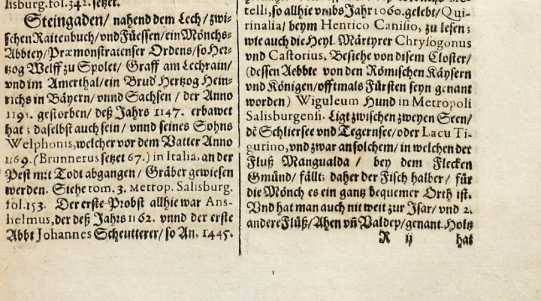 lisburg. fol. 342. setzet.
Steingaden / nahend dem Lech / zwi-
schen Raitenbuch / vnd Füessen / ein Mönchs-
Abbtey / Præmonstratenser Ordens / so Her-
tzog Welff zu Spolet / Graff am Lechrain /
vnd im Amerthal / ein Brud' Hertzog Hein-
richs in Bäyern / vnnd Sachsen / der Anno
1191. gestorben / deß Jahrs 1147. erbawet
hat: daselbst auch sein / vnnd seines Sohns
Welphonis, welcher vor dem Vatter Anno
1169. (Brunnerus setzet 67.) in Italia, an der
Pest mit Todt abgangen / Gräber gewiesen
werden. Sihe tom. 3. Metrop. Salisburg.
fol. 153. Der erste Probst allhie war Ans-
helmus, der deß Jahrs 1162. vnnd der erste
Abbt Johannes Scheutterer / so An. 1445.
telli, so allhie vmbs Jahr 1060. gelebt / Qui-
rinalia / beym Henrico Canisio, zu lesen:
wie auch die Heyl. Märtyrer Chrysogonus
vnd Castorius, Besihe von disem Closter /
(dessen Aebbte von den Römischen Käysern
vnd Königen / offtmals Fürsten seyn genant
worden) Wiguleum Hund in Metropoli
Salisburgensi. Ligt zwischen zweyen Seen /
dẽ Schliersee vnd Tegernsee / oder Lacu Ti-
gurino, vnd zwar an solchem / in welchen der
Fluß Mangualda / bey dem Flecken
Gmünd / fällt: daher der Fisch halber / für
die Mönch es ein gantz bequemer Orth ist.
Vnd hat man auch nit weit zur Isar / vnd 2.
andere Flüß / Ahen vñ Valdep / genant. Holtz
R ij hat